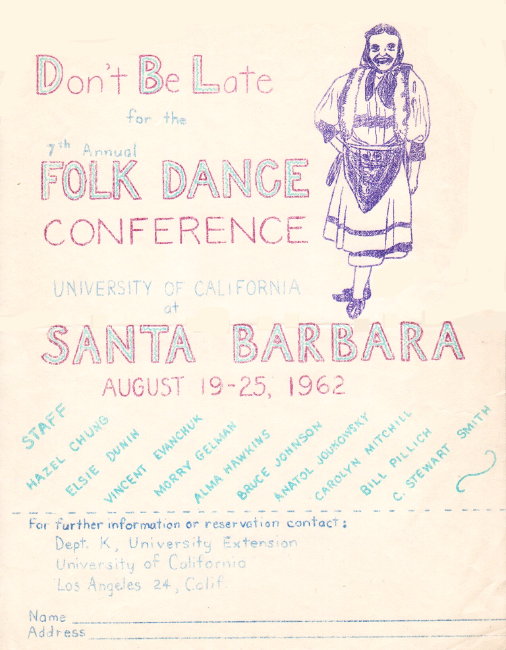 Don't Be Late
for the
7th Annual
FOLK DANCE
CONFERENCE
UNIVERSITY OF CALIFORNIA
at
SANTA BARBARA
AUGUST 19-25, 1962
STAFF
HAZEL CHUNG
ELSIE DUNIN
VINCENT EVANCHUK
MORRY GELMAN
ALMA HAWKINS
BRUCE JOHNSON
ANATOL JOUKOWSKY
CAROLYN MITCHILL
BILL PILLICH
C. STEWART SMITH
For further information or reservation contact:
Dept. K, University Extension
University of California
Los Angeles 24, Calif.
Name
Address